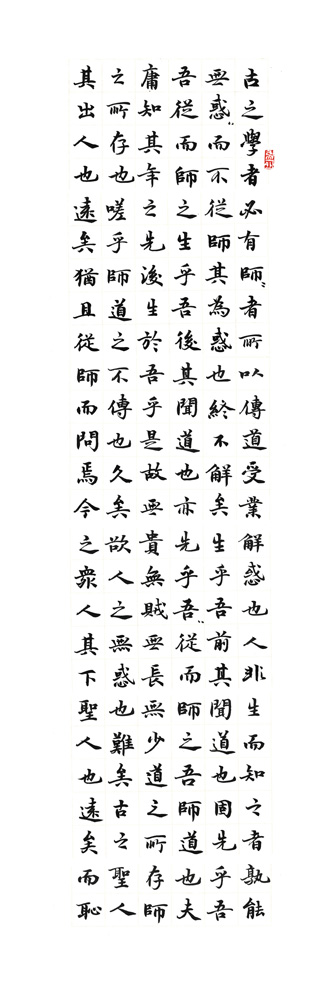 古之學者必有師〻者所以傳道受業解惑也人非生而知之者孰能
無惑〻而不從師其為惑也終不解矣生乎吾前其聞道也固先乎吾
吾從而師之生乎吾後其聞道也亦先乎吾〻從而師之吾師道也夫
庸知其年之先後生於吾乎是故無貴無賤無長無少道之所存師
之所存也嗟乎師道之不傳也久矣欲人之無惑也難矣古之聖人
其出人也遠矣猶且從師而問焉今之眾人其下聖人也遠矣而恥